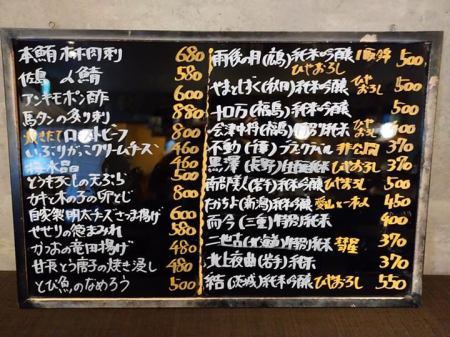 本鮪 赤肉刺 680
佐島 〆鯖 580
アンキモポン酢 600
馬タンの炙り刺 800
炊きたてローストビーフ 800
いぶりがっこクリームチーズ 460
梅水晶 460
とうもろこしの天ぷら 500
カキと木の子の卵とじ 800
自家製明太チーズさつま揚げ 600
せせりの徳まみれ 580
かつおの竜田揚げ 480
甘長とう唐子の焼き浸し 480
とび魚のなめろう 500
雨後の月(広島)純米吟醸 ひやおろし 500
やまとしずく(秋田)純米吟醸 ひやおろし 500
十ロ万(福島)純米吟醸 500
会津中将(福島)純米 ひやおろし 600
不動(千葉) 非公開 370
黒澤(長野)純米 ひやおろし 370
南部美人(岩手)純米 ひやおろし 500
たかちよ(新潟)純米 450
而今(三重)特別純米 400
二世古(北海道)特別純米 彗星 370
北上夜曲(岩手)純米 370
結(茨城)純米吟醸 ひやおろし 550